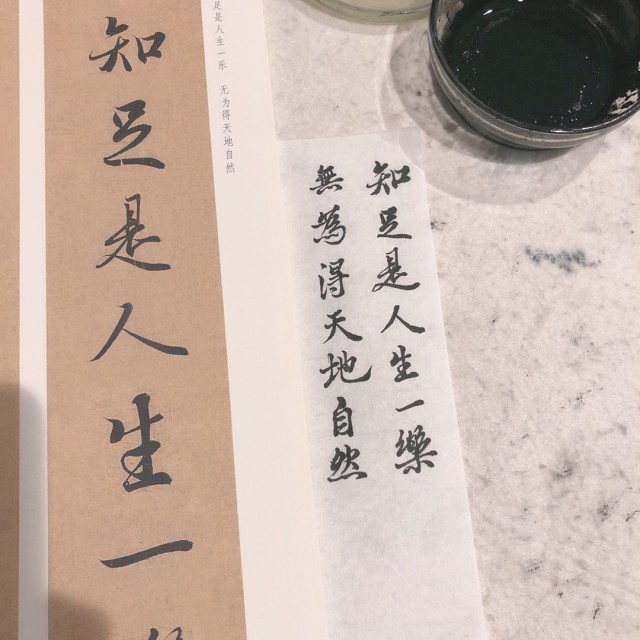 知足是人生一
足是人生一乐 无为得天地自然
知足是人生一樂
無為得天地自然